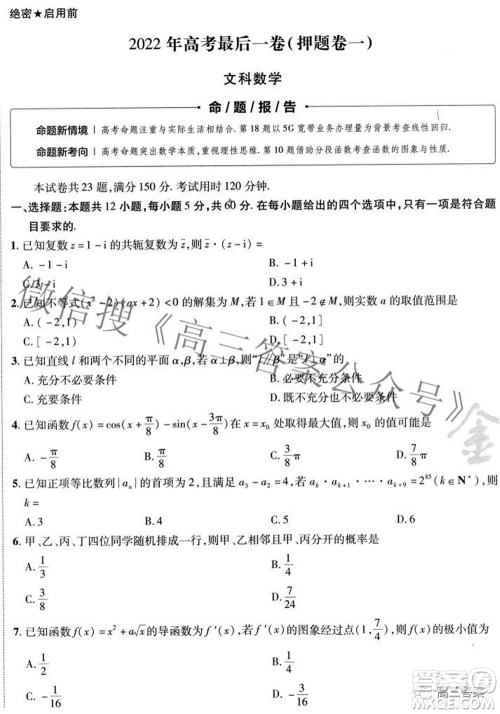 绝密★启用前
2022年高考最后一卷(押题卷一)
文科数学
命/题/报/告
命题新情境 高考命题注重与实际生活相结合.第18题以5G宽带业务办理量为背景考查线性回归.
命题新考向 高考命题突出数学本质,重视理性思维.第10题借助分段函数考查函数的性质.
本试卷共23题,满分150分.考试用时120分钟.
一、选择题:本题共12小题,每小题5分,共60分.在每小题给出的四个选项中,只有一项是符合题
目要求的.
1.已知复数z=1-i的共轭复数z̄,则z̄·(z-1)=
A.-1-i B.-1+i
C.3-i D.3+i
2.已知不等式(x²-2)(ax+2)<0的解集为M,若1∈M,则实数a的取值范围是
A.(-2,1) B.(-2,
C.[ D.[-2,1)
3.已知直线l和两个不同的平面α,β,若 则"l∥β"是"
A.充分不必要条件 B.既不充分也不必要条件
C.充分必要条件 D.必要不充分条件
4.已知函数f(x)=cos(x+π/8)-sin(x-3π/8)在x=x₀处取得最大值,则x₀的可能值为
A.-π/8 B.π/8 C.3π/8 D.7π/8
5.已知正项等比数列{aₙ}的首项为2,且满足a₃-a₂=4,若aₖaₖ₊₁·…·aₖ₊₉=2⁸⁵(k∈N*),则
k=
A.3 B.4 C.5 D.6
6.甲、乙、丙、丁四位同学随机排成一行,则甲、乙两位同学相邻且甲、丙两位同学不相邻的概率为
A.1/3 B.1/4
C.3/8 D.7/24
7.已知函数f(x)=x²+a√x的导函数为f′(x),若f′(x)的图象经过点(1,7/4),则f(x)的极小值为
A.1/16 B.-1/8
C.-3/16 D.
微信搜《高三答案公众号》
高三答案